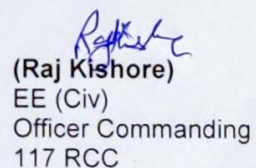 (Raj Kishore)
EE (Civ)
Officer Commanding
117 RCC